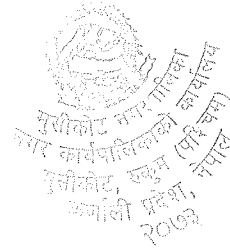 मुसीकोट नगर पालिका
नगर कार्यपालिकाको कार्यालय
मुसीकोट, रुकुम (पश्चिम)
कर्णाली प्रदेश, नेपाल
२०७३